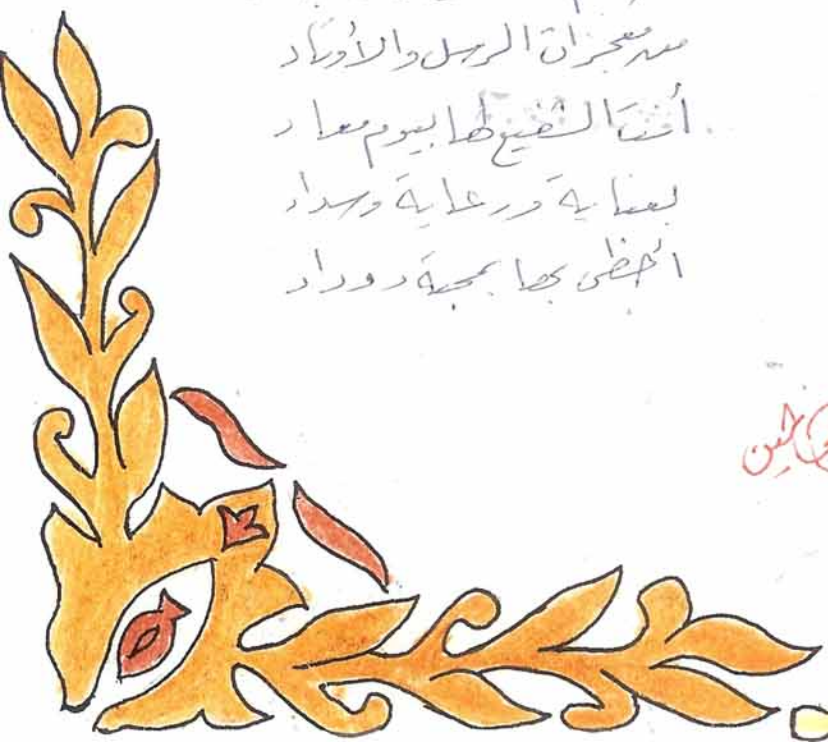 من معجزات الرسل والأوتاد
أنت الشفيع لها بيوم معاد
بعناية ورعاية وسداد
أحظى بها بمحبة ووداد